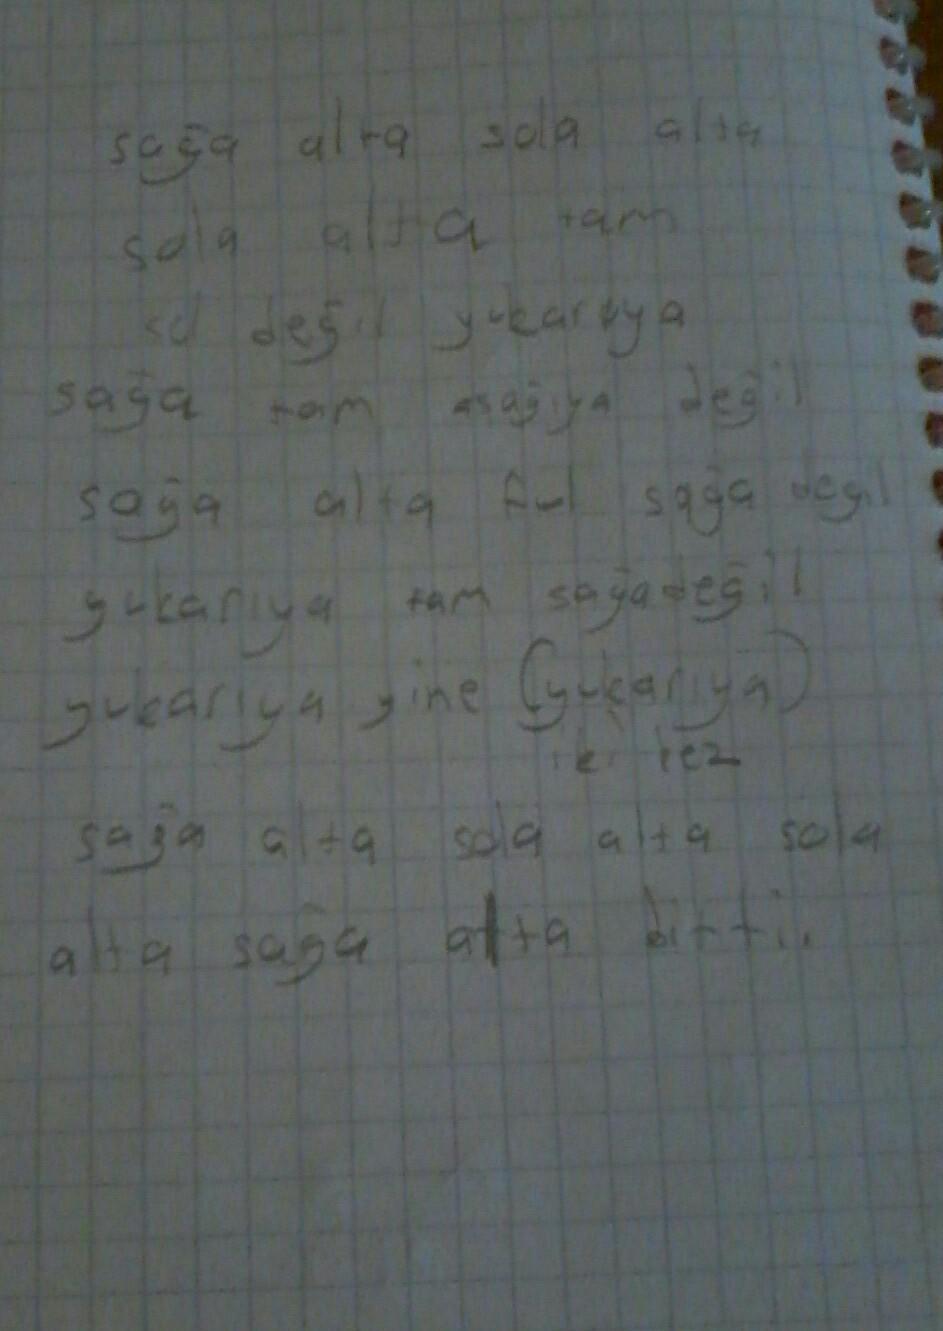 sağa alta sola alta
sola alta tam
sol değil yukarıya
sağa tam aşağıya değil
sağa alta ful sağa değil
yukarıya tam sağa değil
yukarıya yine (yukarıya)
iki kez
sağa alta sola alta sola
alta sağa alta bitti.